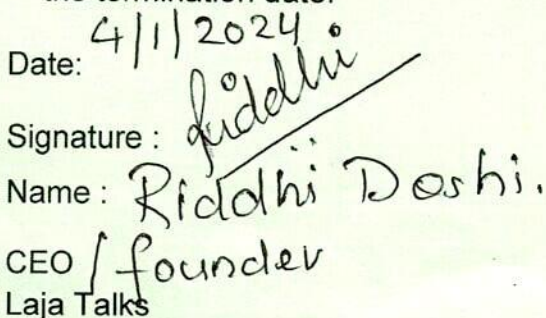 the termination date.
Date: 4/1/2024
Signature : Riddhi
Name : Riddhi Doshi.
CEO / founder
Laja Talks